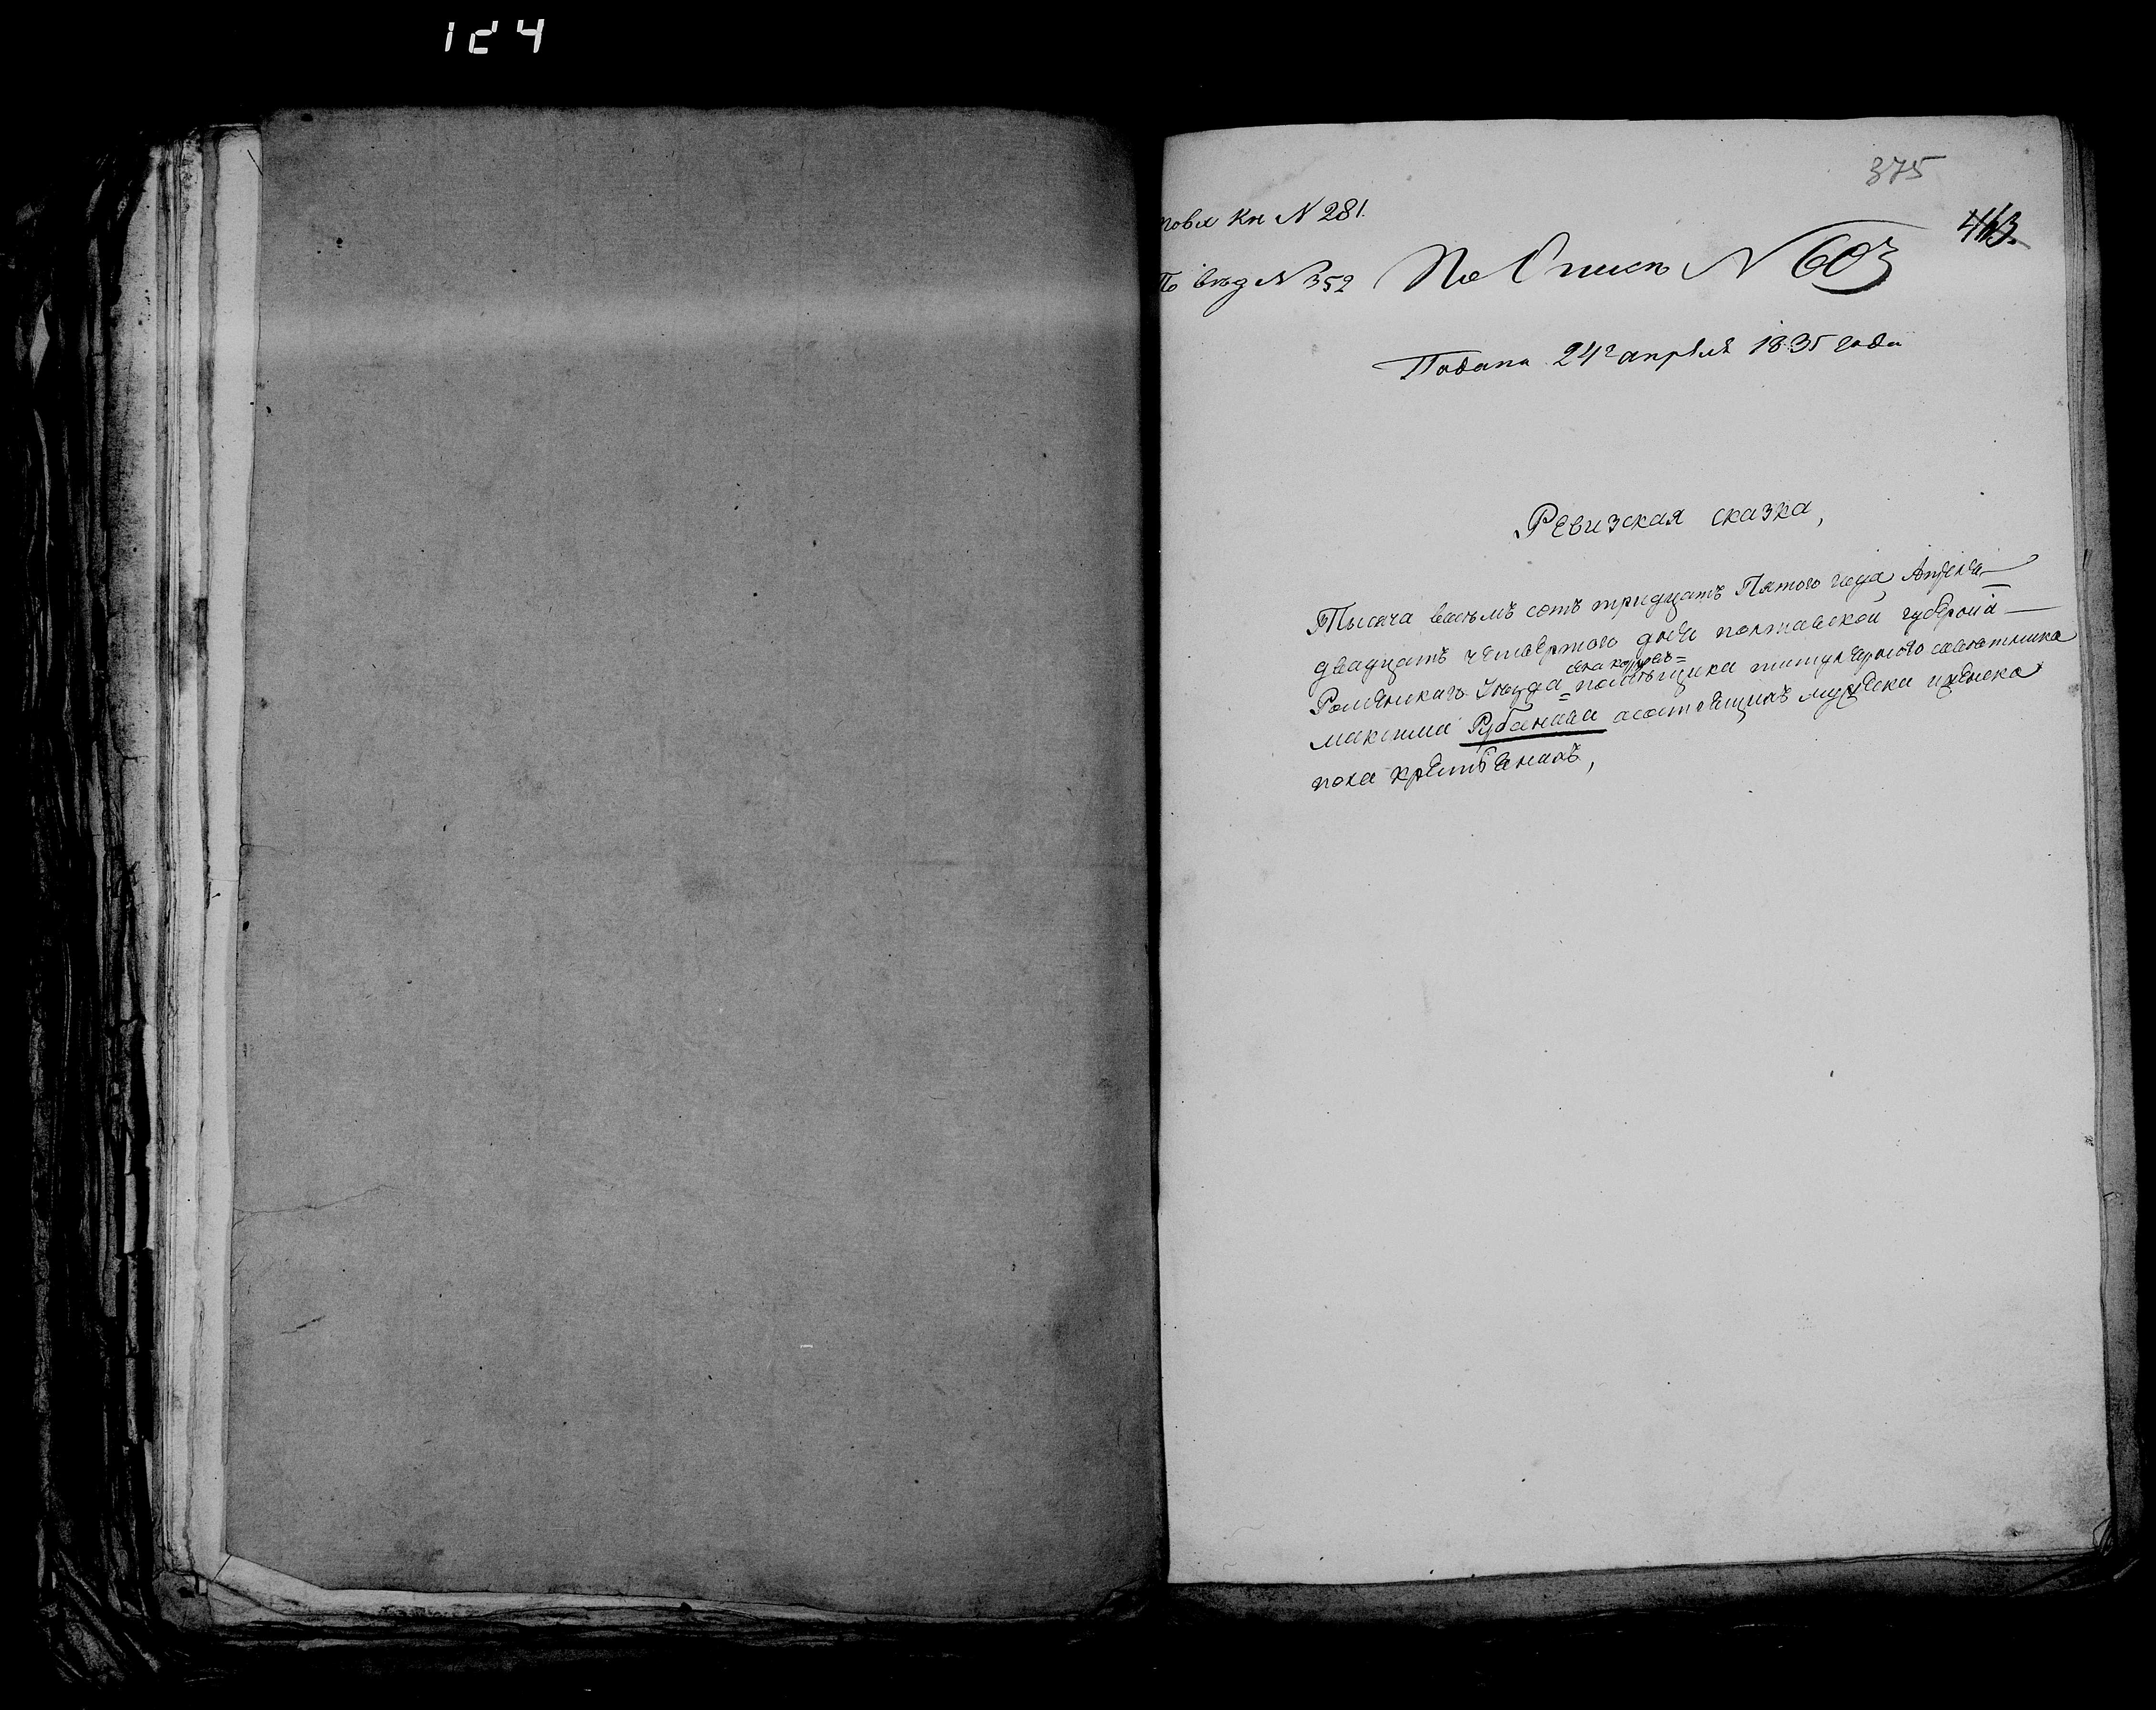 124
375
443.
повл Кн N 281.
По вѣд N 352 По Описи N 603
Подана 24г апрѣля 1835 года
Ревизская сказка,
Тысяча восъмъ сотъ тридцатъ Пятого года Апреля
двадцатъ четвертого дня полтавской губернiи
Роменскаго Уезда помѣщика титулярного советника
максима Рубанова асостоящихъ мужеска иженска
пола крестьянахъ,